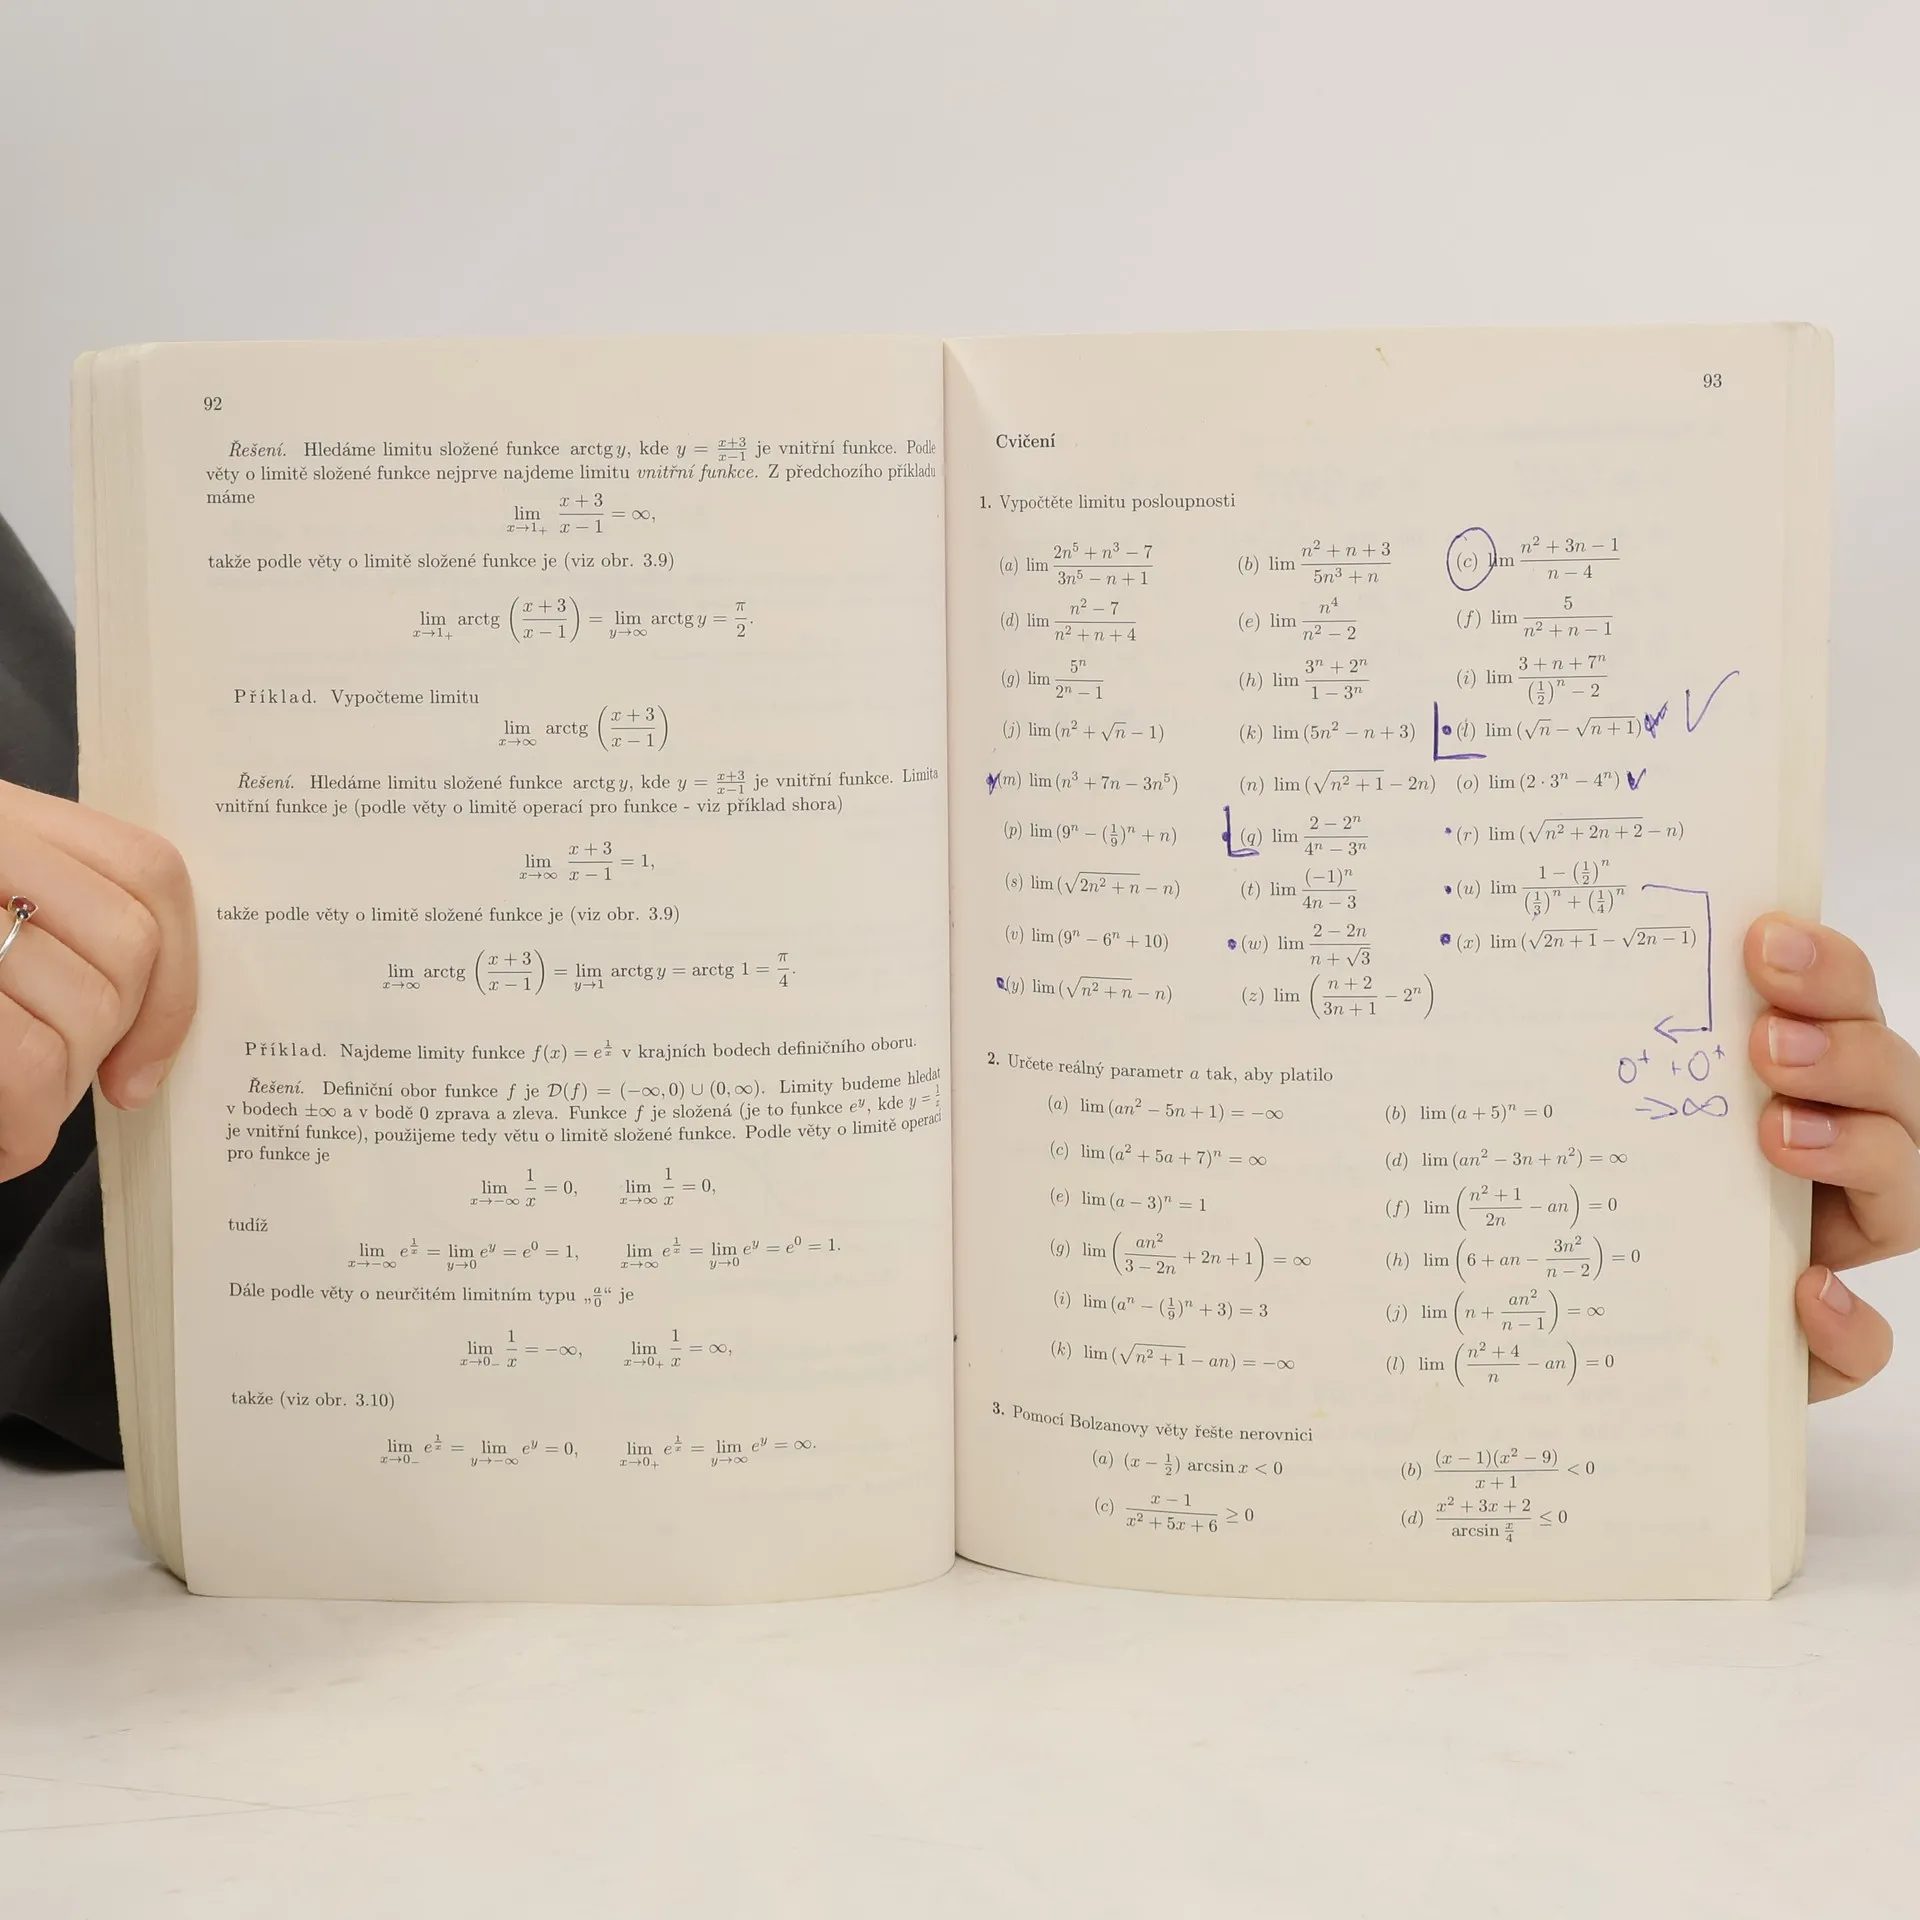 92
Řešení. Hledáme limitu složené funkce arctg y, kde y = \frac{x+3}{x-1} je vnitřní funkce. Podle
věty o limitě složené funkce nejprve najdeme limitu vnitřní funkce. Z předchozího příkladu
máme
\lim_{x→1+} \frac{x+3}{x-1} = ∞,
takže podle věty o limitě složené funkce je (viz obr. 3.9)
\lim_{x→1+} arctg (\frac{x+3}{x-1}) = \lim_{y→∞} arctg y = \frac{π}{2}.
Příklad. Vypočteme limitu
\lim_{x→∞} arctg (\frac{x+3}{x-1})
Řešení. Hledáme limitu složené funkce arctg y, kde y = \frac{x+3}{x-1} je vnitřní funkce. Limita
vnitřní funkce je (podle věty o limitě operací pro funkce - viz příklad shora)
\lim_{x→∞} \frac{x+3}{x-1} = 1,
takže podle věty o limitě složené funkce je (viz obr. 3.9)
\lim_{x→∞} arctg (\frac{x+3}{x-1}) = \lim_{y→1} arctg y = arctg 1 = \frac{π}{4}.
Příklad. Najdeme limity funkce f(x) = e^{\frac{1}{x}} v krajních bodech definičního oboru.
Řešení. Definiční obor funkce f je D(f) = (−∞, 0) ∪ (0, ∞). Limity budeme hledat
v bodech ±∞ a v bodě 0 zprava a zleva. Funkce f je složená (je to funkce e^y, kde y = \frac{1}{x}
je vnitřní funkce), použijeme tedy větu o limitě složené funkce. Podle věty o limitě operací
pro funkce je
\lim_{x→−∞} \frac{1}{x} = 0, \lim_{x→∞} \frac{1}{x} = 0,
tudíž
\lim_{x→−∞} e^{\frac{1}{x}} = \lim_{y→0} e^y = e^0 = 1, \lim_{x→∞} e^{\frac{1}{x}} = \lim_{y→0} e^y = e^0 = 1.
Dále podle věty o neurčitém limitním typu „\frac{a}{0}“ je
\lim_{x→0−} \frac{1}{x} = −∞, \lim_{x→0+} \frac{1}{x} = ∞,
takže (viz obr. 3.10)
\lim_{x→0−} e^{\frac{1}{x}} = \lim_{y→−∞} e^y = 0, \lim_{x→0+} e^{\frac{1}{x}} = \lim_{y→∞} e^y = ∞.
93
Cvičení
1. Vypočtěte limitu posloupnosti
(a) lim \frac{2n^5 + n^3 − 7}{3n^5 − n + 1} (b) lim \frac{n^2 + n + 3}{5n^3 + n} (c) lim \frac{n^2 + 3n − 1}{n − 4}
(d) lim \frac{n^2 − 7}{n^2 + n + 4} (e) lim \frac{n^4}{n^2 − 2} (f) lim \frac{5}{n^2 + n − 1}
(g) lim \frac{5^n}{2^n − 1} (h) lim \frac{3^n + 2^n}{1 − 3^n} (i) lim \frac{3 + n + 7^n}{(\frac{1}{2})^n − 2}
(j) lim (n^2 + √n − 1) (k) lim (5n^2 − n + 3) (l) lim (√n − √{n + 1})
(m) lim (n^3 + 7n − 3n^5) (n) lim (√{n^2 + 1} − 2n) (o) lim (2 · 3^n − 4^n)
(p) lim (9^n − (\frac{1}{9})^n + n) (q) lim \frac{2 − 2^n}{4^n − 3^n} (r) lim (√{n^2 + 2n + 2} − n)
(s) lim (√{2n^2 + n} − n) (t) lim \frac{(−1)^n}{4n − 3} (u) lim \frac{1 − (\frac{1}{2})^n}{(\frac{1}{3})^n + (\frac{1}{4})^n}
(v) lim (9^n − 6^n + 10) (w) lim \frac{2 − 2n}{n + √3} (x) lim (√{2n + 1} − √{2n − 1})
(y) lim (√{n^2 + n} − n) (z) lim (\frac{n + 2}{3n + 1} − 2^n)
0⁺ + 0⁺
⇒ ∞
2. Určete reálný parametr a tak, aby platilo
(a) lim (an^2 − 5n + 1) = −∞ (b) lim (a + 5)^n = 0
(c) lim (a^2 + 5a + 7)^n = ∞ (d) lim (an^2 − 3n + n^2) = ∞
(e) lim (a − 3)^n = 1 (f) lim (\frac{n^2 + 1}{2n} − an) = 0
(g) lim (\frac{an^2}{3 − 2n} + 2n + 1) = ∞ (h) lim (6 + an − \frac{3n^2}{n − 2}) = 0
(i) lim (a^n − (\frac{1}{9})^n + 3) = 3 (j) lim (n + \frac{an^2}{n − 1}) = ∞
(k) lim (√{n^2 + 1} − an) = −∞ (l) lim (\frac{n^2 + 4}{n} − an) = 0
3. Pomocí Bolzanovy věty řešte nerovnici
(a) (x − \frac{1}{2}) arcsin x < 0 (b) \frac{(x − 1)(x^2 − 9)}{x + 1} < 0
(c) \frac{x − 1}{x^2 + 5x + 6} ≥ 0 (d) \frac{x^2 + 3x + 2}{arcsin \frac{x}{4}} ≤ 0